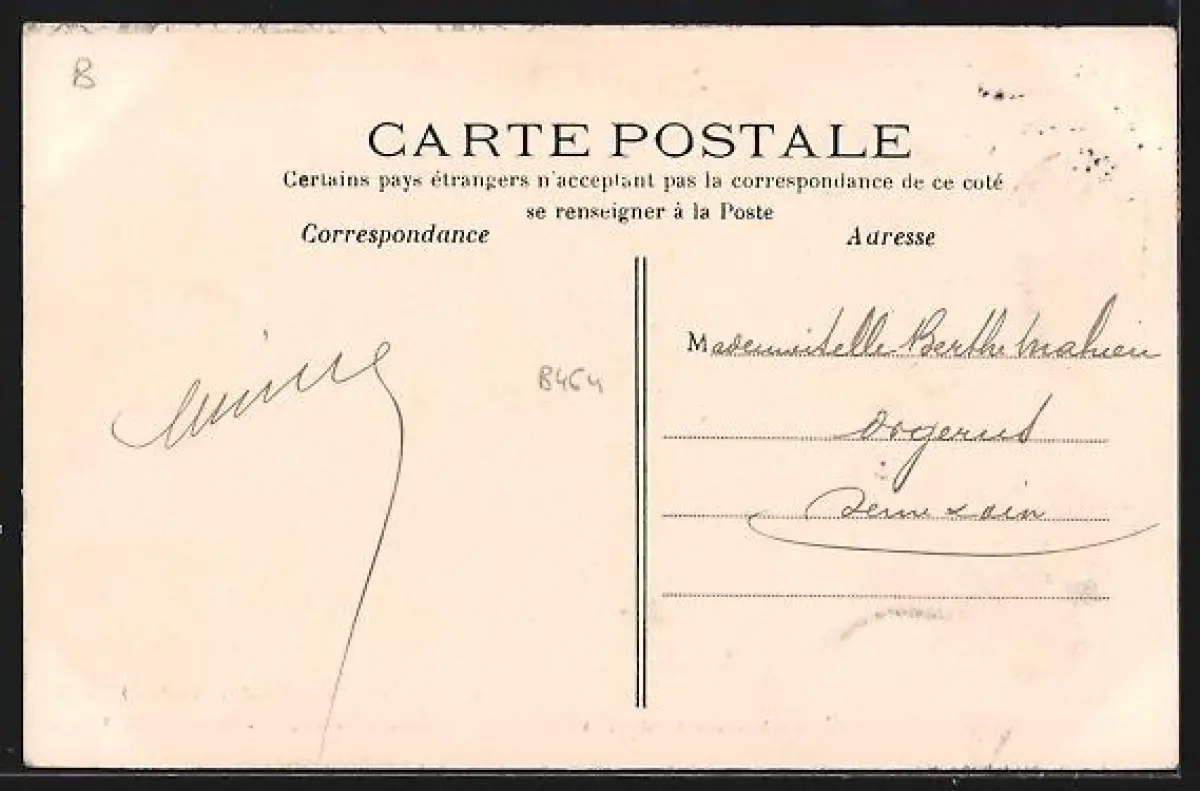 B
CARTE POSTALE
Certains pays étrangers n'acceptant pas la correspondance de ce coté
se renseigner à la Poste
Correspondance
Adresse
Mademoiselle Berthe Mahieu
B464
Orgerus
Seine & Oise